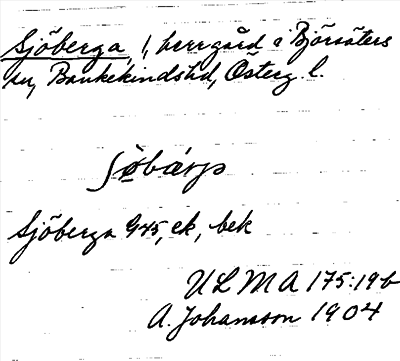 Sjöberga, 1, herrgård i Björsäters
sn, Bankekinds hd, Österg. l.
Sjöberga G45, ek, bek
ULMA 175:19b
A. Johansson 1904